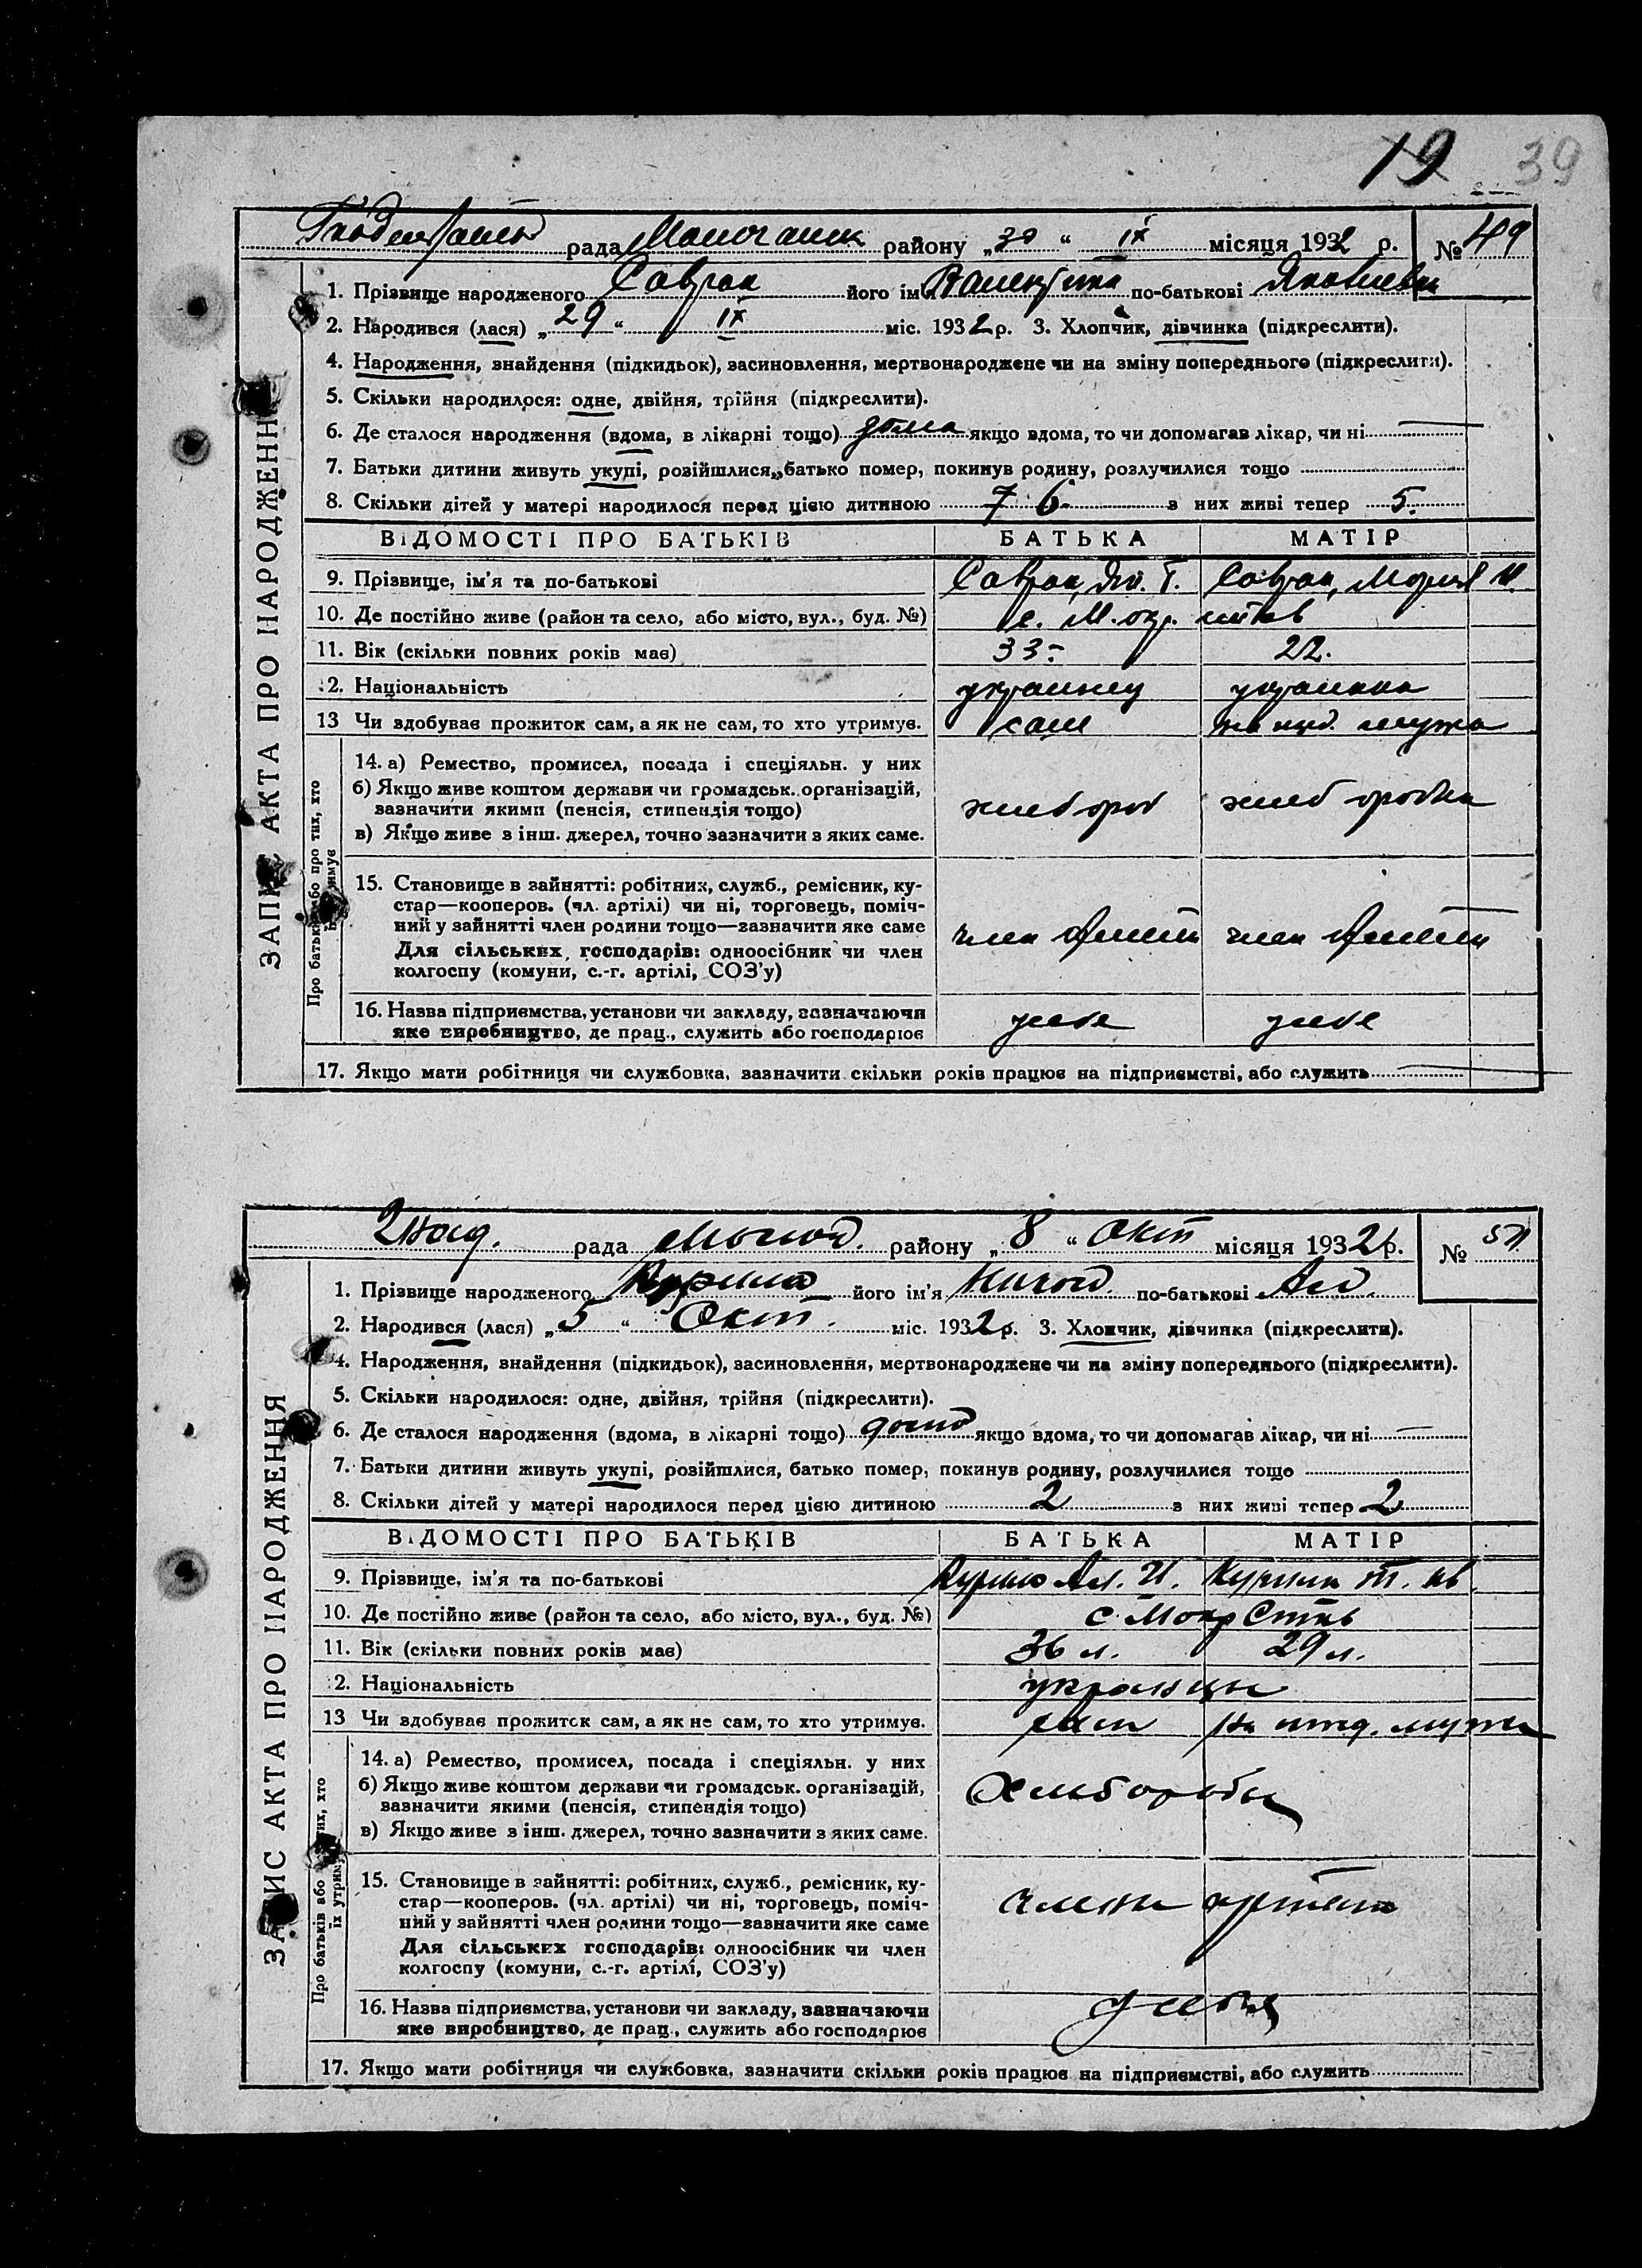 19 39
рада району „30“ IX місяця 1932 р. № 49
1. Прізвище народженого Саврак його ім'я Валентина по-батькові Яковлевн
2. Народився (лася) „29“ IX міс. 1932 р. 3. Хлопчик, дівчинка (підкреслити).
4. Народження, знайдення (підкидьок), засиновлення, мертвонароджене чи на зміну попереднього (підкреслити).
5. Скільки народилося: одне, двійня, трійня (підкреслити).
6. Де сталося народження (вдома, в лікарні тощо) дома якщо вдома, то чи допомагав лікар, чи ні
7. Батьки дитини живуть укупі, розійшлися, батько помер, покинув родину, розлучилися тощо
8. Скільки дітей у матері народилося перед цією дитиною 7 6 з них живі тепер 5.
ВІДОМОСТІ ПРО БАТЬКІВ БАТЬКА МАТІР
9. Прізвище, ім'я та по-батькові Саврак, Саврак,
10. Де постійно живе (район та село, або місто, вул., буд. №) с.
11. Вік (скільки повних років має) 33 22.
12. Національність украинец украинка
13 Чи здобуває прожиток сам, а як не сам, то хто утримує. сам на ижд. мужа
14. а) Ремество, промисел, посада і спеціяльн. у них
б) Якщо живе коштом держави чи громадськ. організацій,
зазначити якими (пенсія, стипендія тощо) хлебороб хлеборобка
в) Якщо живе з інш. джерел, точно зазначити з яких саме.
15. Становище в зайнятті: робітник, служб., ремісник, ку-
стар—кооперов. (чл. артілі) чи ні, торговець, поміч-
ний у зайнятті член родини тощо—зазначити яке саме член артели член артели
Для сільських господарів: одноосібник чи член
колгоспу (комуни, с.-г. артілі, СОЗ'у)
16. Назва підприємства, установи чи закладу, зазначаючи
яке виробництво, де прац., служить або господарює у себя у себя
17. Якщо мати робітниця чи службовка, зазначити скільки років працює на підприємстві, або служить
ЗАПИС АКТА ПРО НАРОДЖЕННЯ
рада району „8“ Окт місяця 1932 р. №
1. Прізвище народженого Курило його ім'я Никол. по-батькові
2. Народився (лася) „5“ Окт. міс. 1932 р. 3. Хлопчик, дівчинка (підкреслити).
4. Народження, знайдення (підкидьок), засиновлення, мертвонароджене чи на зміну попереднього (підкреслити).
5. Скільки народилося: одне, двійня, трійня (підкреслити).
6. Де сталося народження (вдома, в лікарні тощо) дома якщо вдома, то чи допомагав лікар, чи ні
7. Батьки дитини живуть укупі, розійшлися, батько помер, покинув родину, розлучилися тощо
8. Скільки дітей у матері народилося перед цією дитиною 2 з них живі тепер 2
ВІДОМОСТІ ПРО БАТЬКІВ БАТЬКА МАТІР
9. Прізвище, ім'я та по-батькові Курило Ал. И. Курило
10. Де постійно живе (район та село, або місто, вул., буд. №) с.
11. Вік (скільки повних років має) 36 л. 29 л.
12. Національність украинцы
13 Чи здобуває прожиток сам, а як не сам, то хто утримує. сам на ижд. мужа
14. а) Ремество, промисел, посада і спеціяльн. у них
б) Якщо живе коштом держави чи громадськ. організацій, Хлеборобы
зазначити якими (пенсія, стипендія тощо)
в) Якщо живе з інш. джерел, точно зазначити з яких саме.
15. Становище в зайнятті: робітник, служб., ремісник, ку-
стар—кооперов. (чл. артілі) чи ні, торговець, поміч- члены артели
ний у зайнятті член родини тощо—зазначити яке саме
Для сільських господарів: одноосібник чи член
колгоспу (комуни, с.-г. артілі, СОЗ'у)
16. Назва підприємства, установи чи закладу, зазначаючи у себя
яке виробництво, де прац., служить або господарює
17. Якщо мати робітниця чи службовка, зазначити скільки років працює на підприємстві, або служить
ЗАПИС АКТА ПРО НАРОДЖЕННЯ